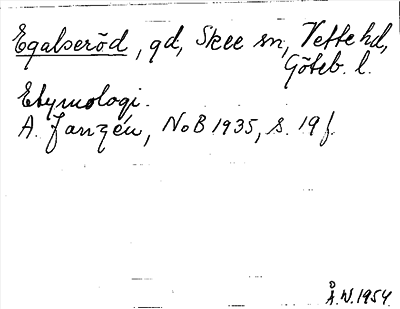 Egalseröd, gd, Skee sn, Vette hd,
Göteb. l.
Etymologi.
A. Janzén, NoB 1935, s. 19 f.
Å.W. 1954